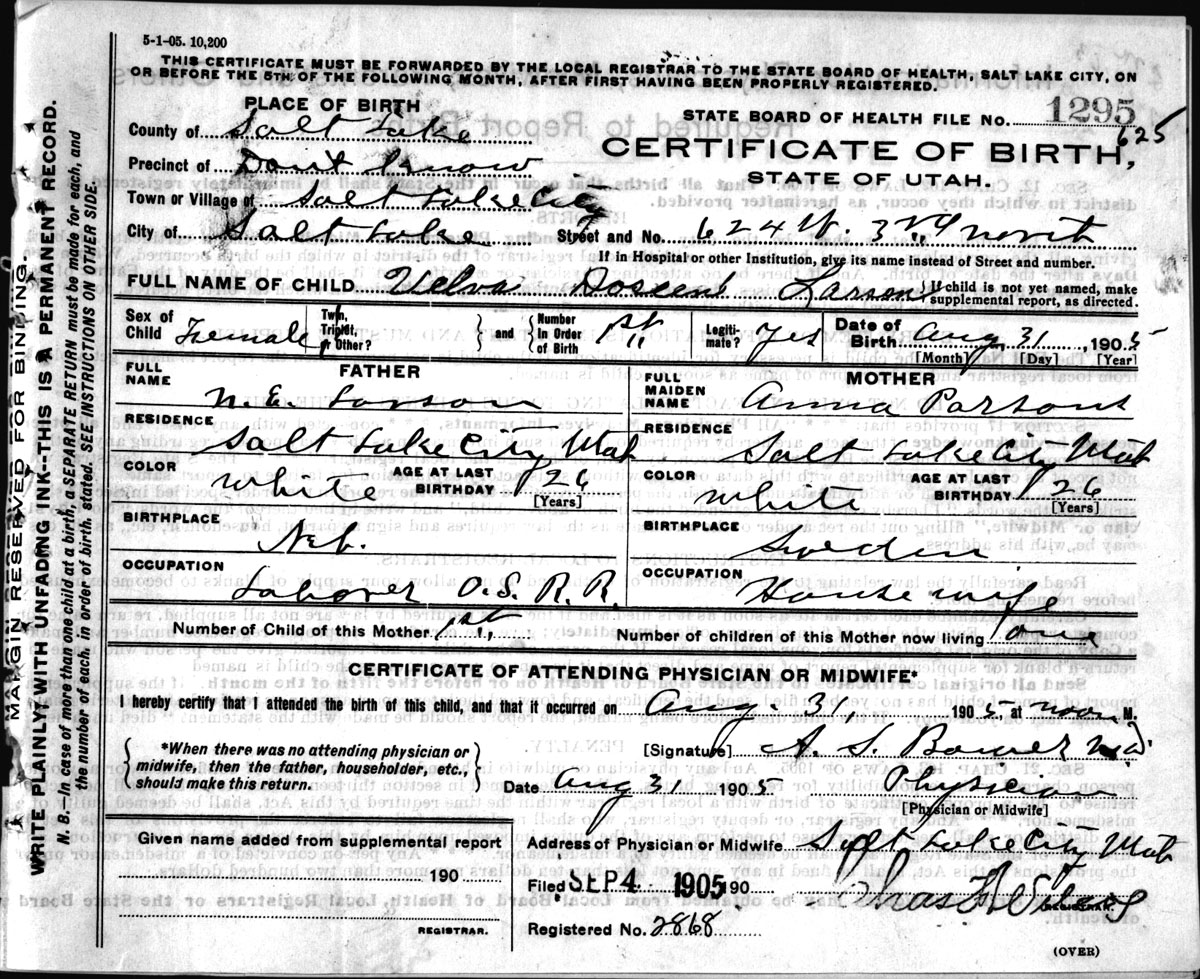 5-1-05. 10,200
THIS CERTIFICATE MUST BE FORWARDED BY THE LOCAL REGISTRAR TO THE STATE BOARD OF HEALTH, SALT LAKE CITY, ON
OR BEFORE THE 5TH OF THE FOLLOWING MONTH, AFTER FIRST HAVING BEEN PROPERLY REGISTERED.
PLACE OF BIRTH
STATE BOARD OF HEALTH FILE NO. 1295
625
County of Salt Lake
CERTIFICATE OF BIRTH,
Precinct of Dont Know
STATE OF UTAH.
Town or Village of Salt Lake City
City of Salt Lake Street and No. 624 W. 3rd North
If in Hospital or other Institution, give its name instead of Street and number.
FULL NAME OF CHILD Velva Larson
If child is not yet named, make
supplemental report, as directed.
Sex of Child Female Twin, Triplet, or Other? and Number In Order of Birth 1st Legitimate? Yes Date of Birth Aug 31, 1905
[Month] [Day] [Year]
FATHER
FULL NAME N. E. Larson
RESIDENCE
Salt Lake City Utah
COLOR White AGE AT LAST BIRTHDAY 26
[Years]
BIRTHPLACE
Neb.
OCCUPATION
Laborer O. S. R. R.
MOTHER
FULL MAIDEN NAME Anna Parsons
RESIDENCE
Salt Lake City Utah
COLOR White AGE AT LAST BIRTHDAY 26
[Years]
BIRTHPLACE
Sweden
OCCUPATION
Housewife
Number of Child of this Mother 1st Number of children of this Mother now living one
CERTIFICATE OF ATTENDING PHYSICIAN OR MIDWIFE*
I hereby certify that I attended the birth of this child, and that it occurred on Aug. 31, 1905, at noon M.
*When there was no attending physician or
midwife, then the father, householder, etc.,
should make this return.
[Signature] A. S. Bower M.D.
Date Aug 31 1905. Physician
[Physician or Midwife]
Given name added from supplemental report
190
REGISTRAR.
Address of Physician or Midwife Salt Lake City Utah
Filed SEP 4 1905 190
REGISTRAR.
Registered No. 2868
(OVER)
MARGIN RESERVED FOR BINDING.
WRITE PLAINLY, WITH UNFADING INK--THIS IS A PERMANENT RECORD.
N. B.—In case of more than one child at a birth, a SEPARATE RETURN must be made for each, and
the number of each, in order of birth, stated. SEE INSTRUCTIONS ON OTHER SIDE.